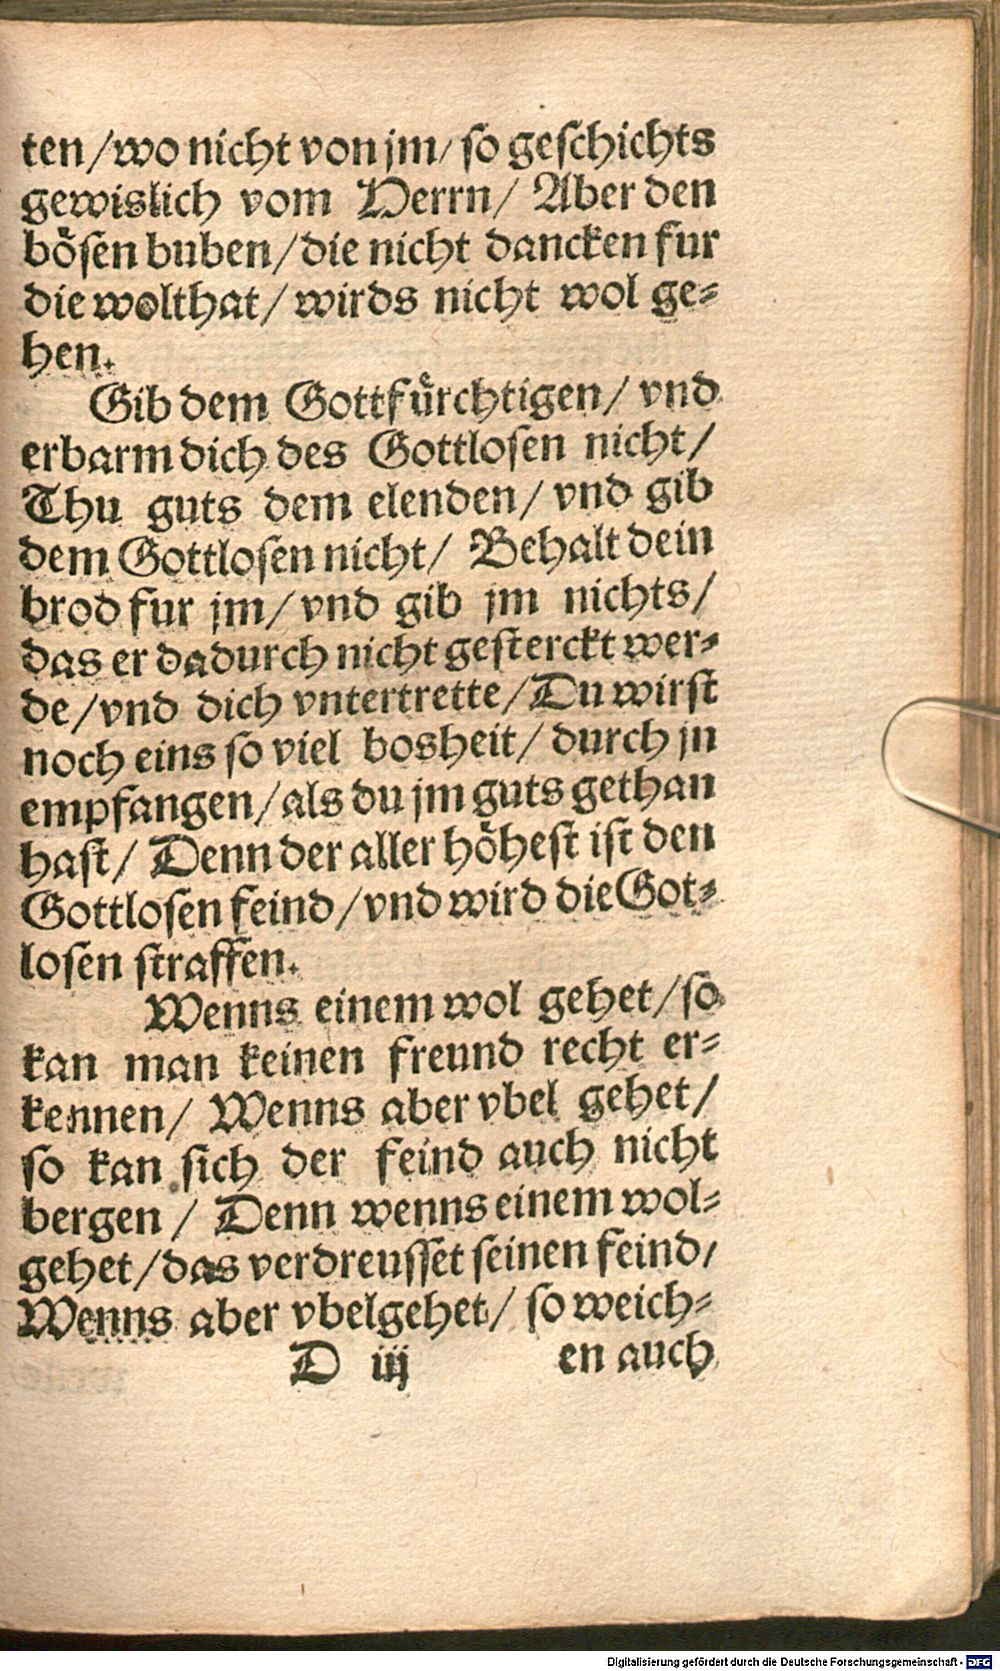 ten/wo nicht von jm/ so geschichts
gewislich vom Herrn/ Aber den
bösen buben/die nicht dancken fur
die wolthat/ wirds nicht wol ge-
hen.
Gib dem Gottfürchtigen/ vnd
erbarm dich des Gottlosen nicht/
Thu guts dem elenden/ vnd gib
dem Gottlosen nicht/ Behalt dein
brod fur jm/ vnd gib jm nichts/
das er dadurch nicht gesterckt wer-
de/vnd dich vntertrette/Du wirst
noch eins so viel bosheit/ durch jn
empfangen/als du jm guts gethan
hast/ Denn der aller höhest ist den
Gottlosen feind/vnd wird die Got-
losen straffen.
Wenns einem wol gehet/so
kan man keinen freund recht er-
kennen/ Wenns aber vbel gehet/
so kan sich der feind auch nicht
bergen / Denn wenns einem wol-
gehet/das verdreusset seinen feind/
Wenns aber vbelgehet/ so weich-
D iij en auch
Digitalisierung gefördert durch die Deutsche Forschungsgemeinschaft - DFG